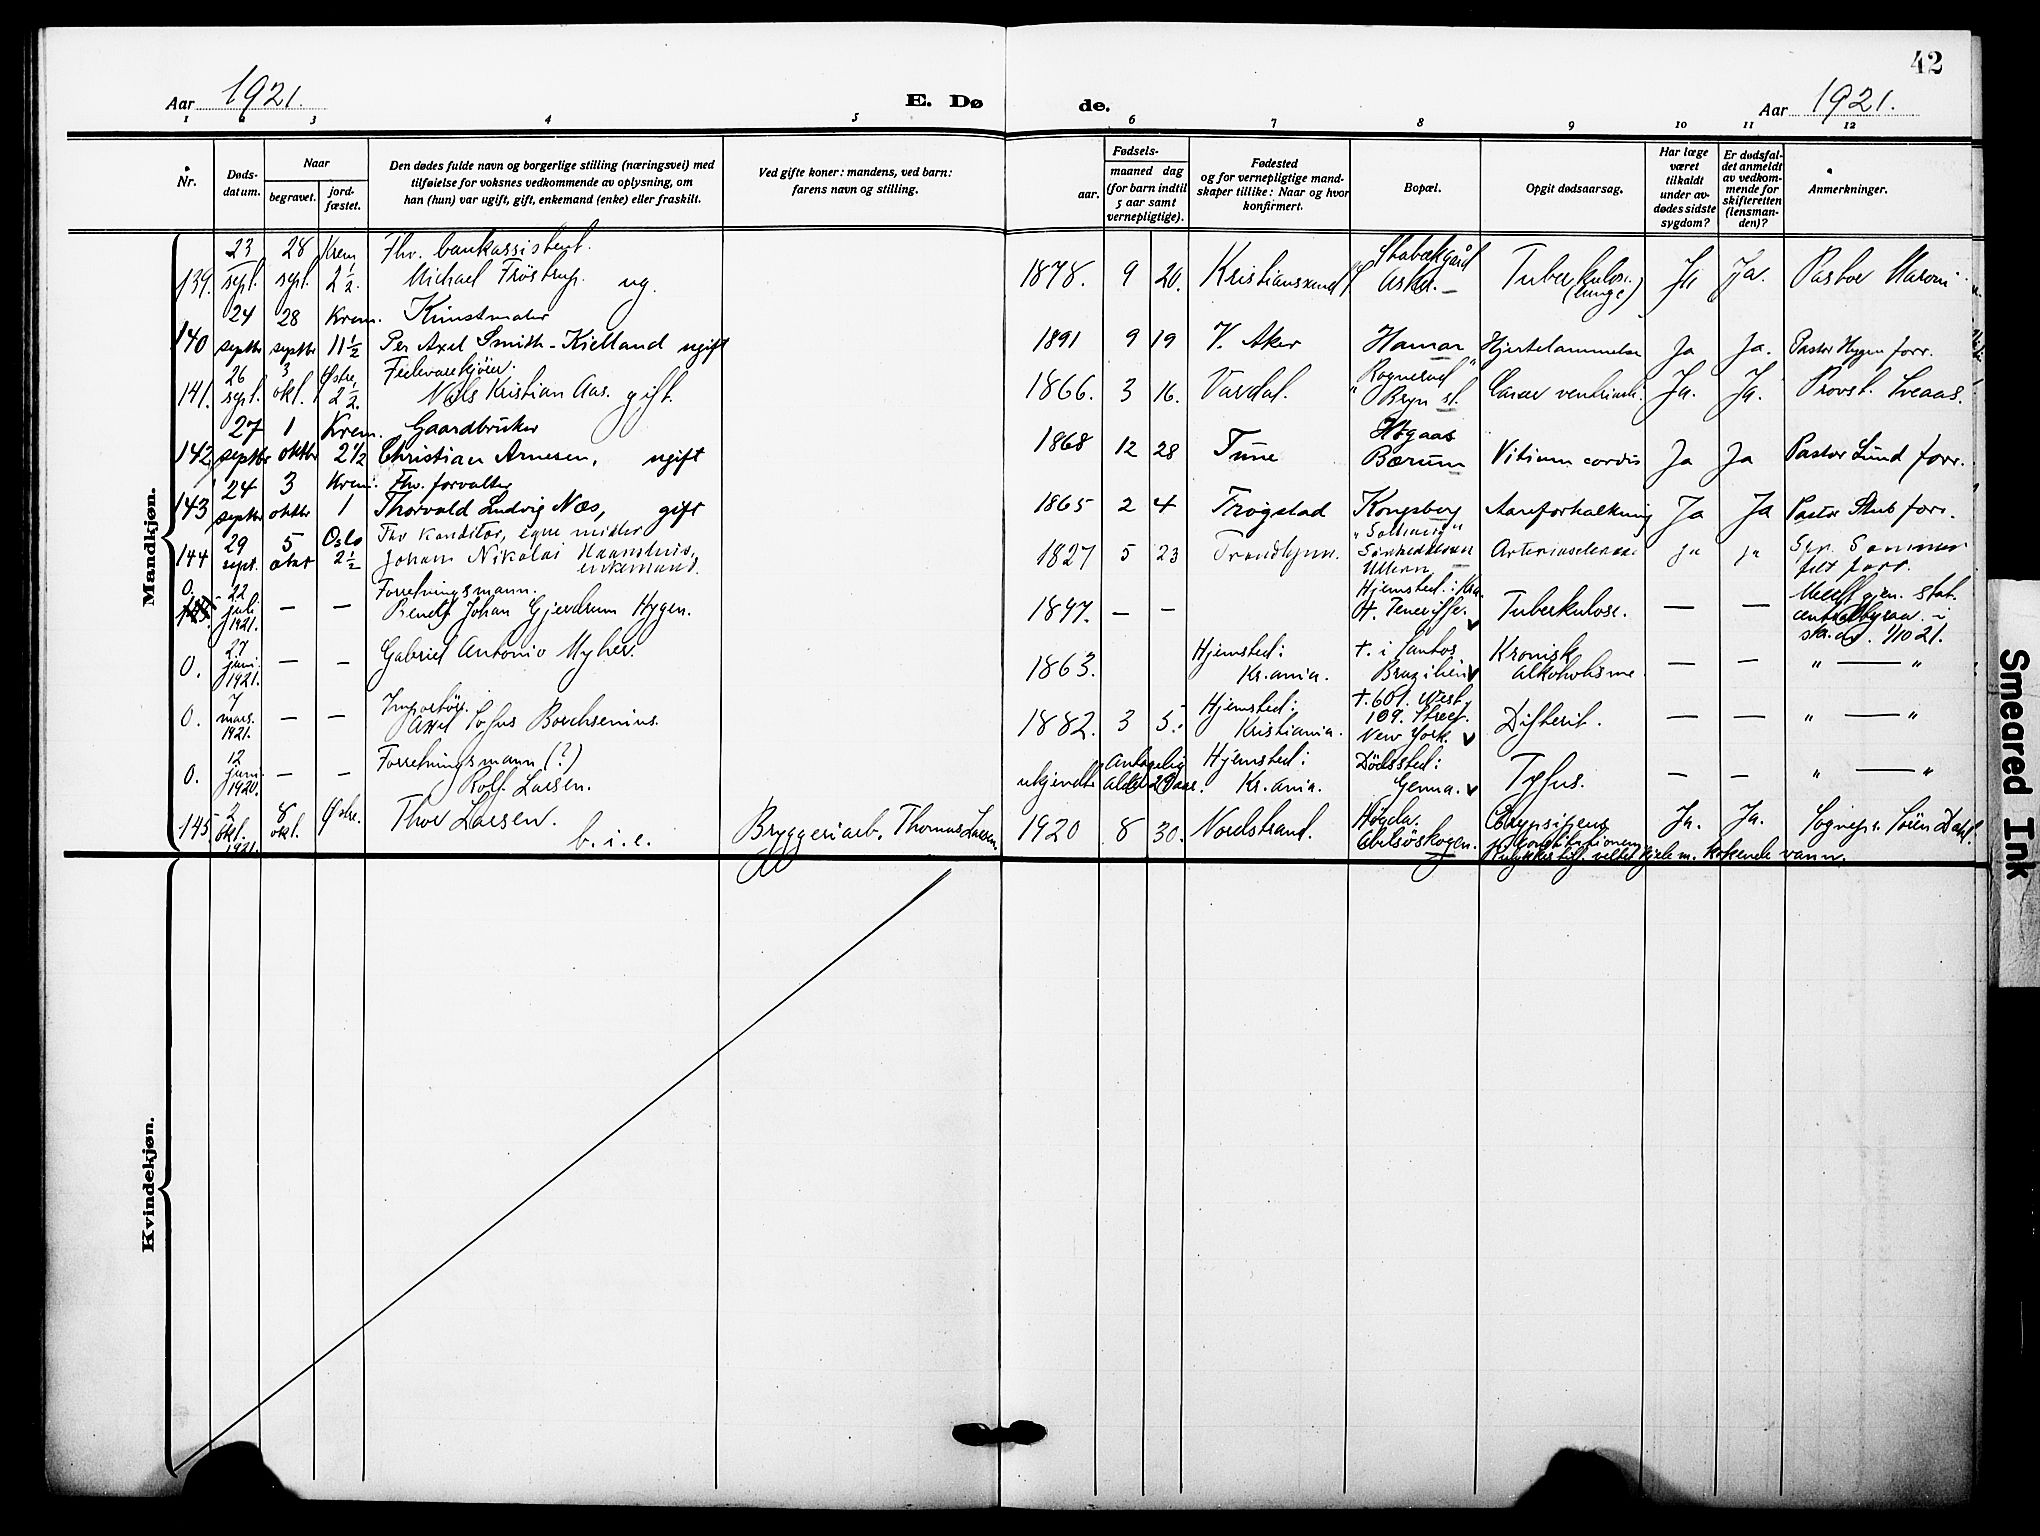 42
Aar 1921.
E. Dø de.
Aar 1921.
1 2 3 4 5 6 7 8 9 10 11 12
Nr.
Døds-
datum.
Naar
begravet.
jord-
fæstet.
Den dødes fulde navn og borgerlige stilling (næringsvei) med
tilføielse for voksnes vedkommende av oplysning, om
han (hun) var ugift, gift, enkemand (enke) eller fraskilt.
Ved gifte koner: mandens, ved barn:
farens navn og stilling.
Fødsels-
aar.
maaned dag
(for barn indtil
5 aar samt
vernepligtige).
Fødested
og for vernepligtige mand-
skaper tillike: Naar og hvor
konfirmert.
Bopæl.
Opgit dødsaarsag.
Har læge
været
tilkaldt
under av-
dødes sidste
sygdom?
Er dødsfal-
det anmeldt
av vedkom-
mende for
skifteretten
(lensman-
den)?
Anmerkninger.
Mandkjøn.
23 28 Krem. Fhv. bankassistent.
139. sept. sept. 2 1/2. Michael Tröstrup. ug. 1878. 9 20. Kristianssund Stabækgård Asker. Tuberkulose. (lunge) Ja Ja. Pastor Maroni
24 28 Krem. Kunstmaler
140 septbr septbr 11 1/2 Per Axel Smith-Kielland ugift 1891 9 19 V. Aker Hamar Hjertelammelse Ja Ja. Pastor Hygen forr.
26 3 Østre, Feilevarekjøier.
141. sept. okt. 2 1/2. Nils Kristian Aas. gift. 1866. 3 16. Vardal. "Rognerud" Bryn st. Cancer ventriculi. Ja. Ja. Provst Sveaas.
27 1 Krem. Gaardbruker
142 septbr oktbr 2 1/2 Christian Arnesen, ugift 1868 12 28 Tune Høgaas Bærum Vitium cordis Ja Ja Pastor Lund forr.
24 3 Krem. Fhv. forvalter
143 septbr oktbr 1 Thorvald Ludvig Næs, gift 1865 2 4 Trøgstad Kongsberg Aareforkalkning Ja Ja Pastor Stub forr.
29 5 Oslo Fhv konditor, egne midler
144 sept. okt 2 1/2 Johan Nikolai enkemand. 1827 5 23 Trondhjem. Ullern Arteriosclerose Ja ja Spr. Sommer felt forr.
0. 22 Forretningsmann.
juli 1921. — — Bendt Johan Gjerdrum Hygen. 1897. — — Hjemsted: Kra. †. Teneriffe. Tuberkulose. — — Meddt gjen. stat. centralbyraa i ska. 1/10 21.
0. 27 juni 1921. — — Gabriel Antonio Myhre. 1863. Hjemsted: Kr.ania. †. i Santos Brazilien Kronisk alkoholisme — — " — "
0. 7 mars. 1921. — — Importør. Axel Sofus Borchsenius. 1882. 3 5. Hjemsted: Kristiania. †. 601. West. 109. Street. New York. Difterit. — — " — "
0. 12 juni 1920. — — Forretningsmann (?) Rolf Larsen. ukjendt. Antagelig alder 29 aar. Hjemsted: Kr.ania. Dødssted: Genua. Tyfus. — — " — "
145 2 okt. 1921. 8 okt. Østre. Thor Larsen. b. i. e. Bryggeriarb. Thomas Larsen. 1920 8 30. Nordstrand. Høgda. Abelsøskogen. Ja. Ja. Sognepr. Søren Dahl.
veltet kjele m. kokende vann.
Kvindekjøn.
Smeared Ink